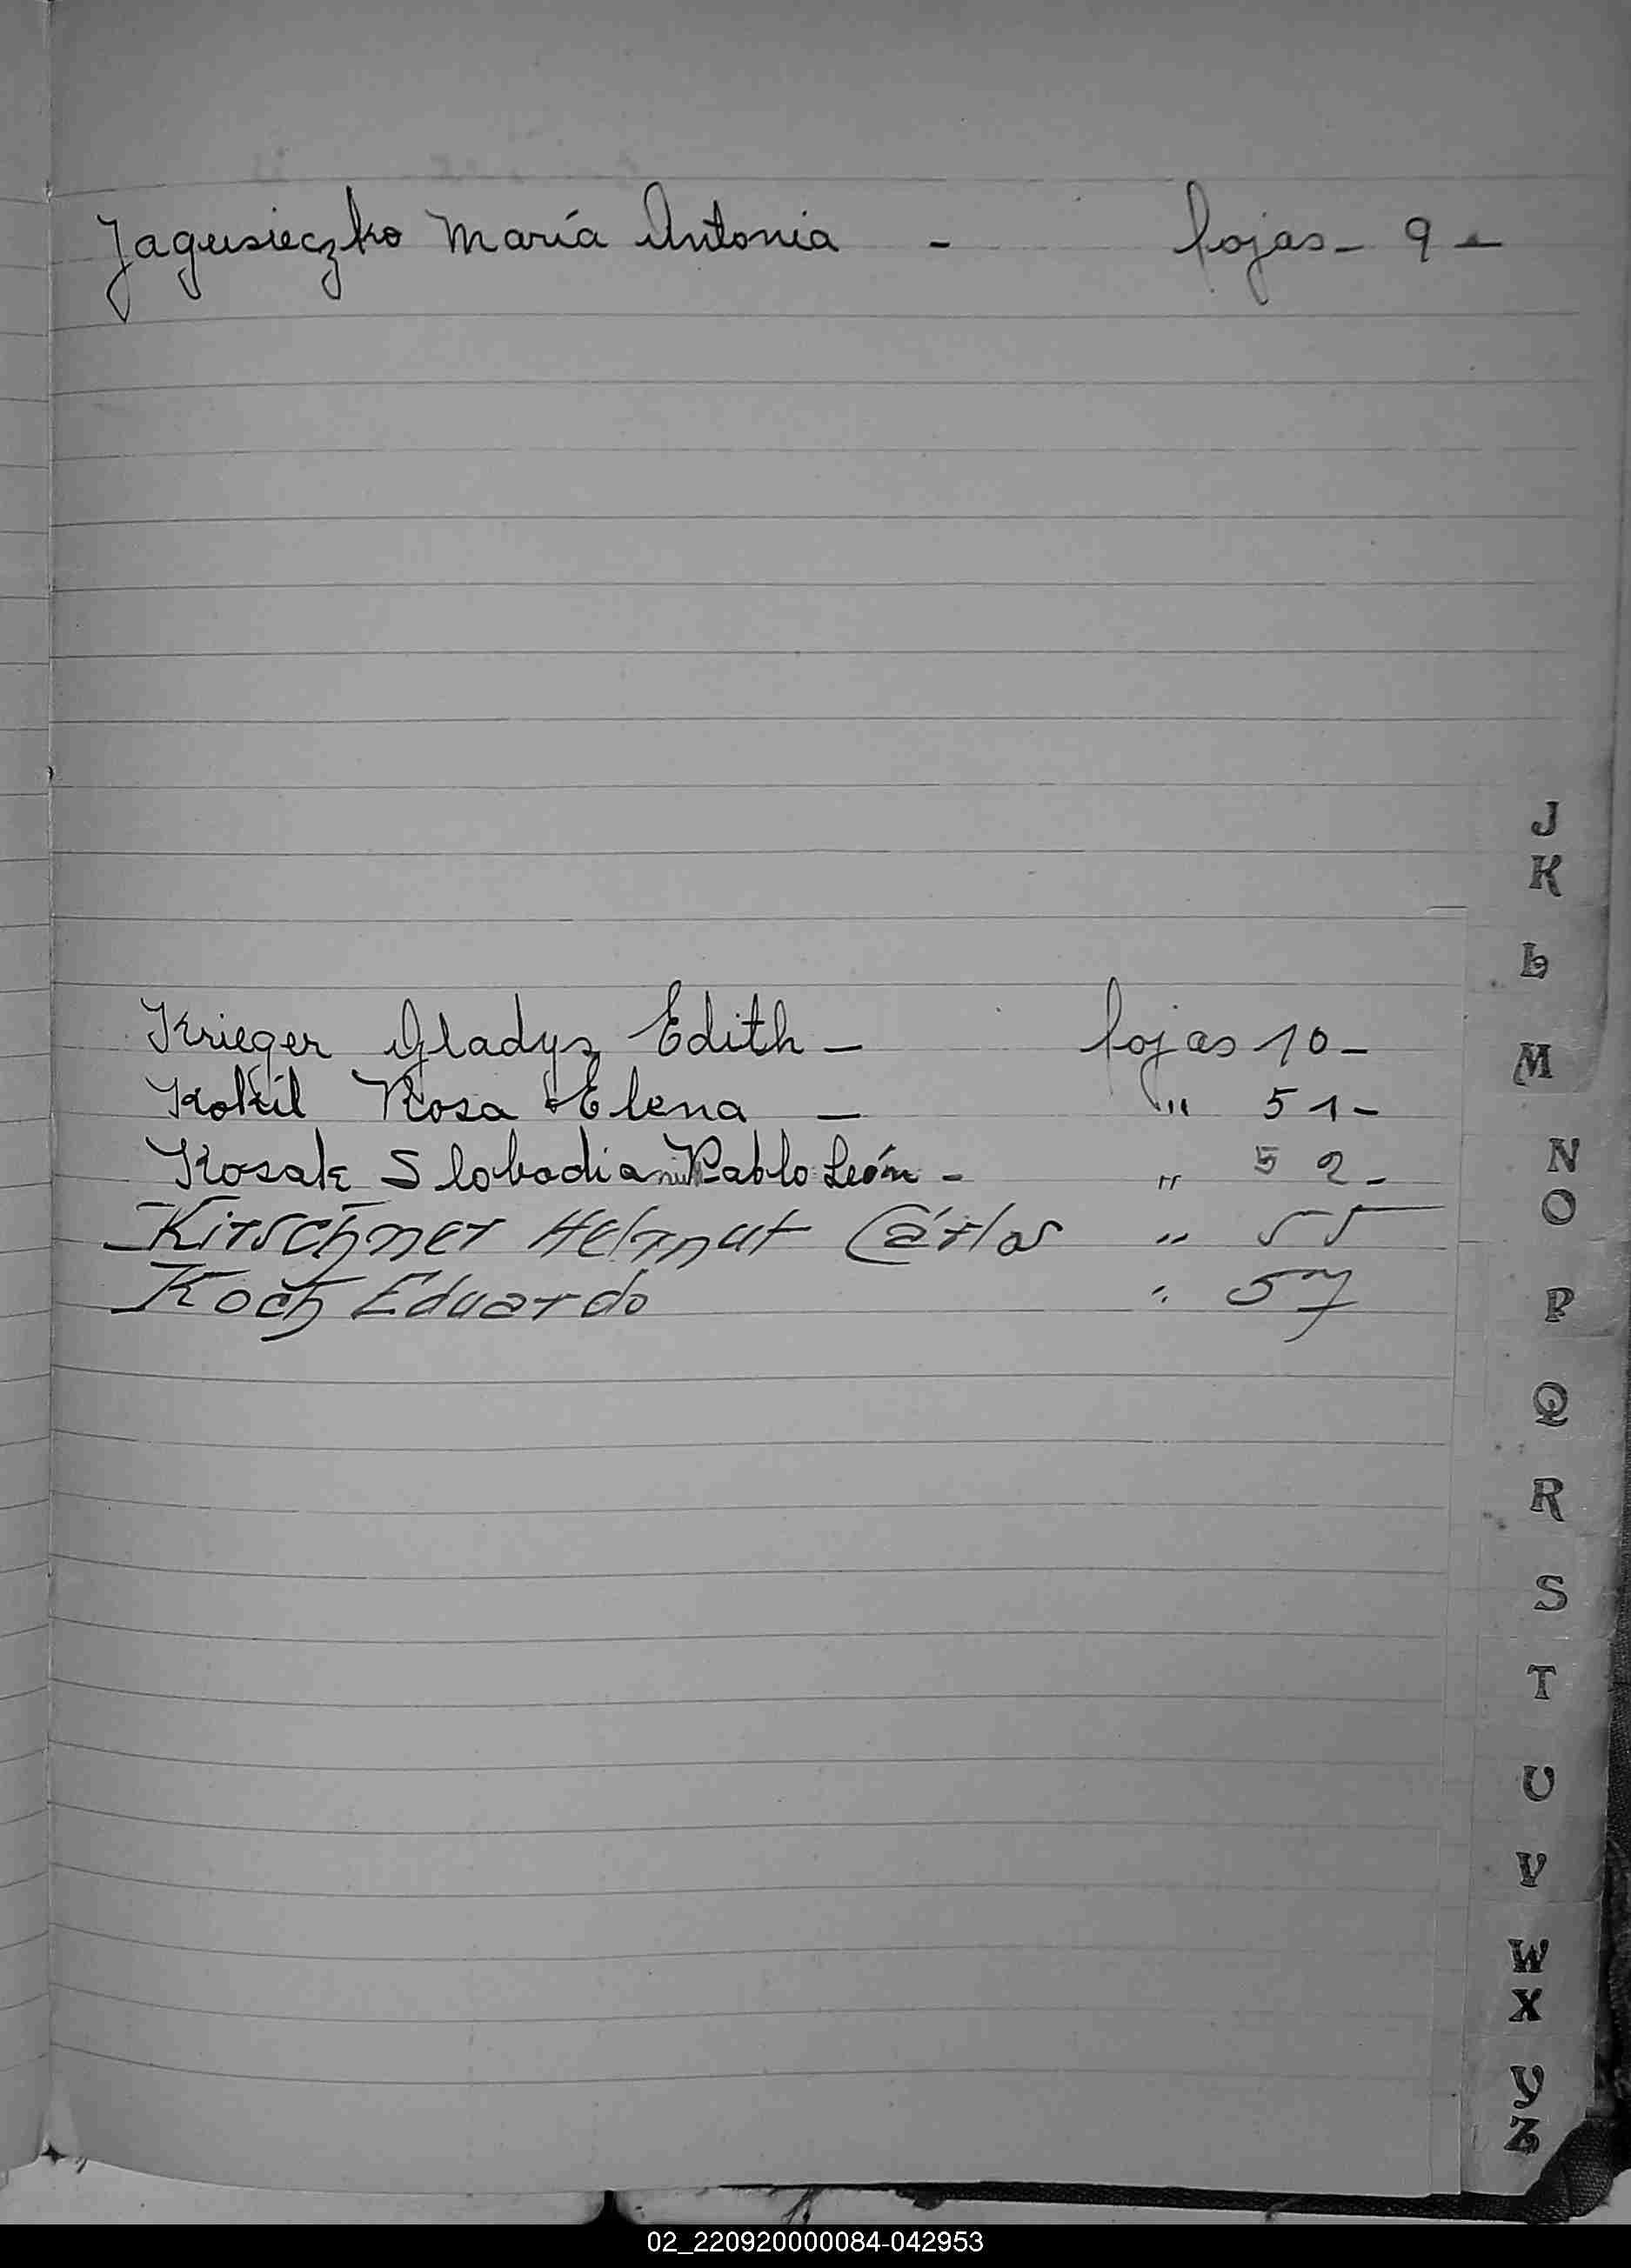 Jagusieczko María Antonia - fojas - 9 -
J
K
L
Krieger Gladys Edith - fojas 10 -
M
Kokil Rosa Elena - " 51 -
Kosak Slobodian Pablo León - " 52 -
N
Kirschner Helmut Cárlos " 55
O
Koch Eduardo " 57
P
Q
R
S
T
U
V
W
X
Y
Z
02_220920000084-042953